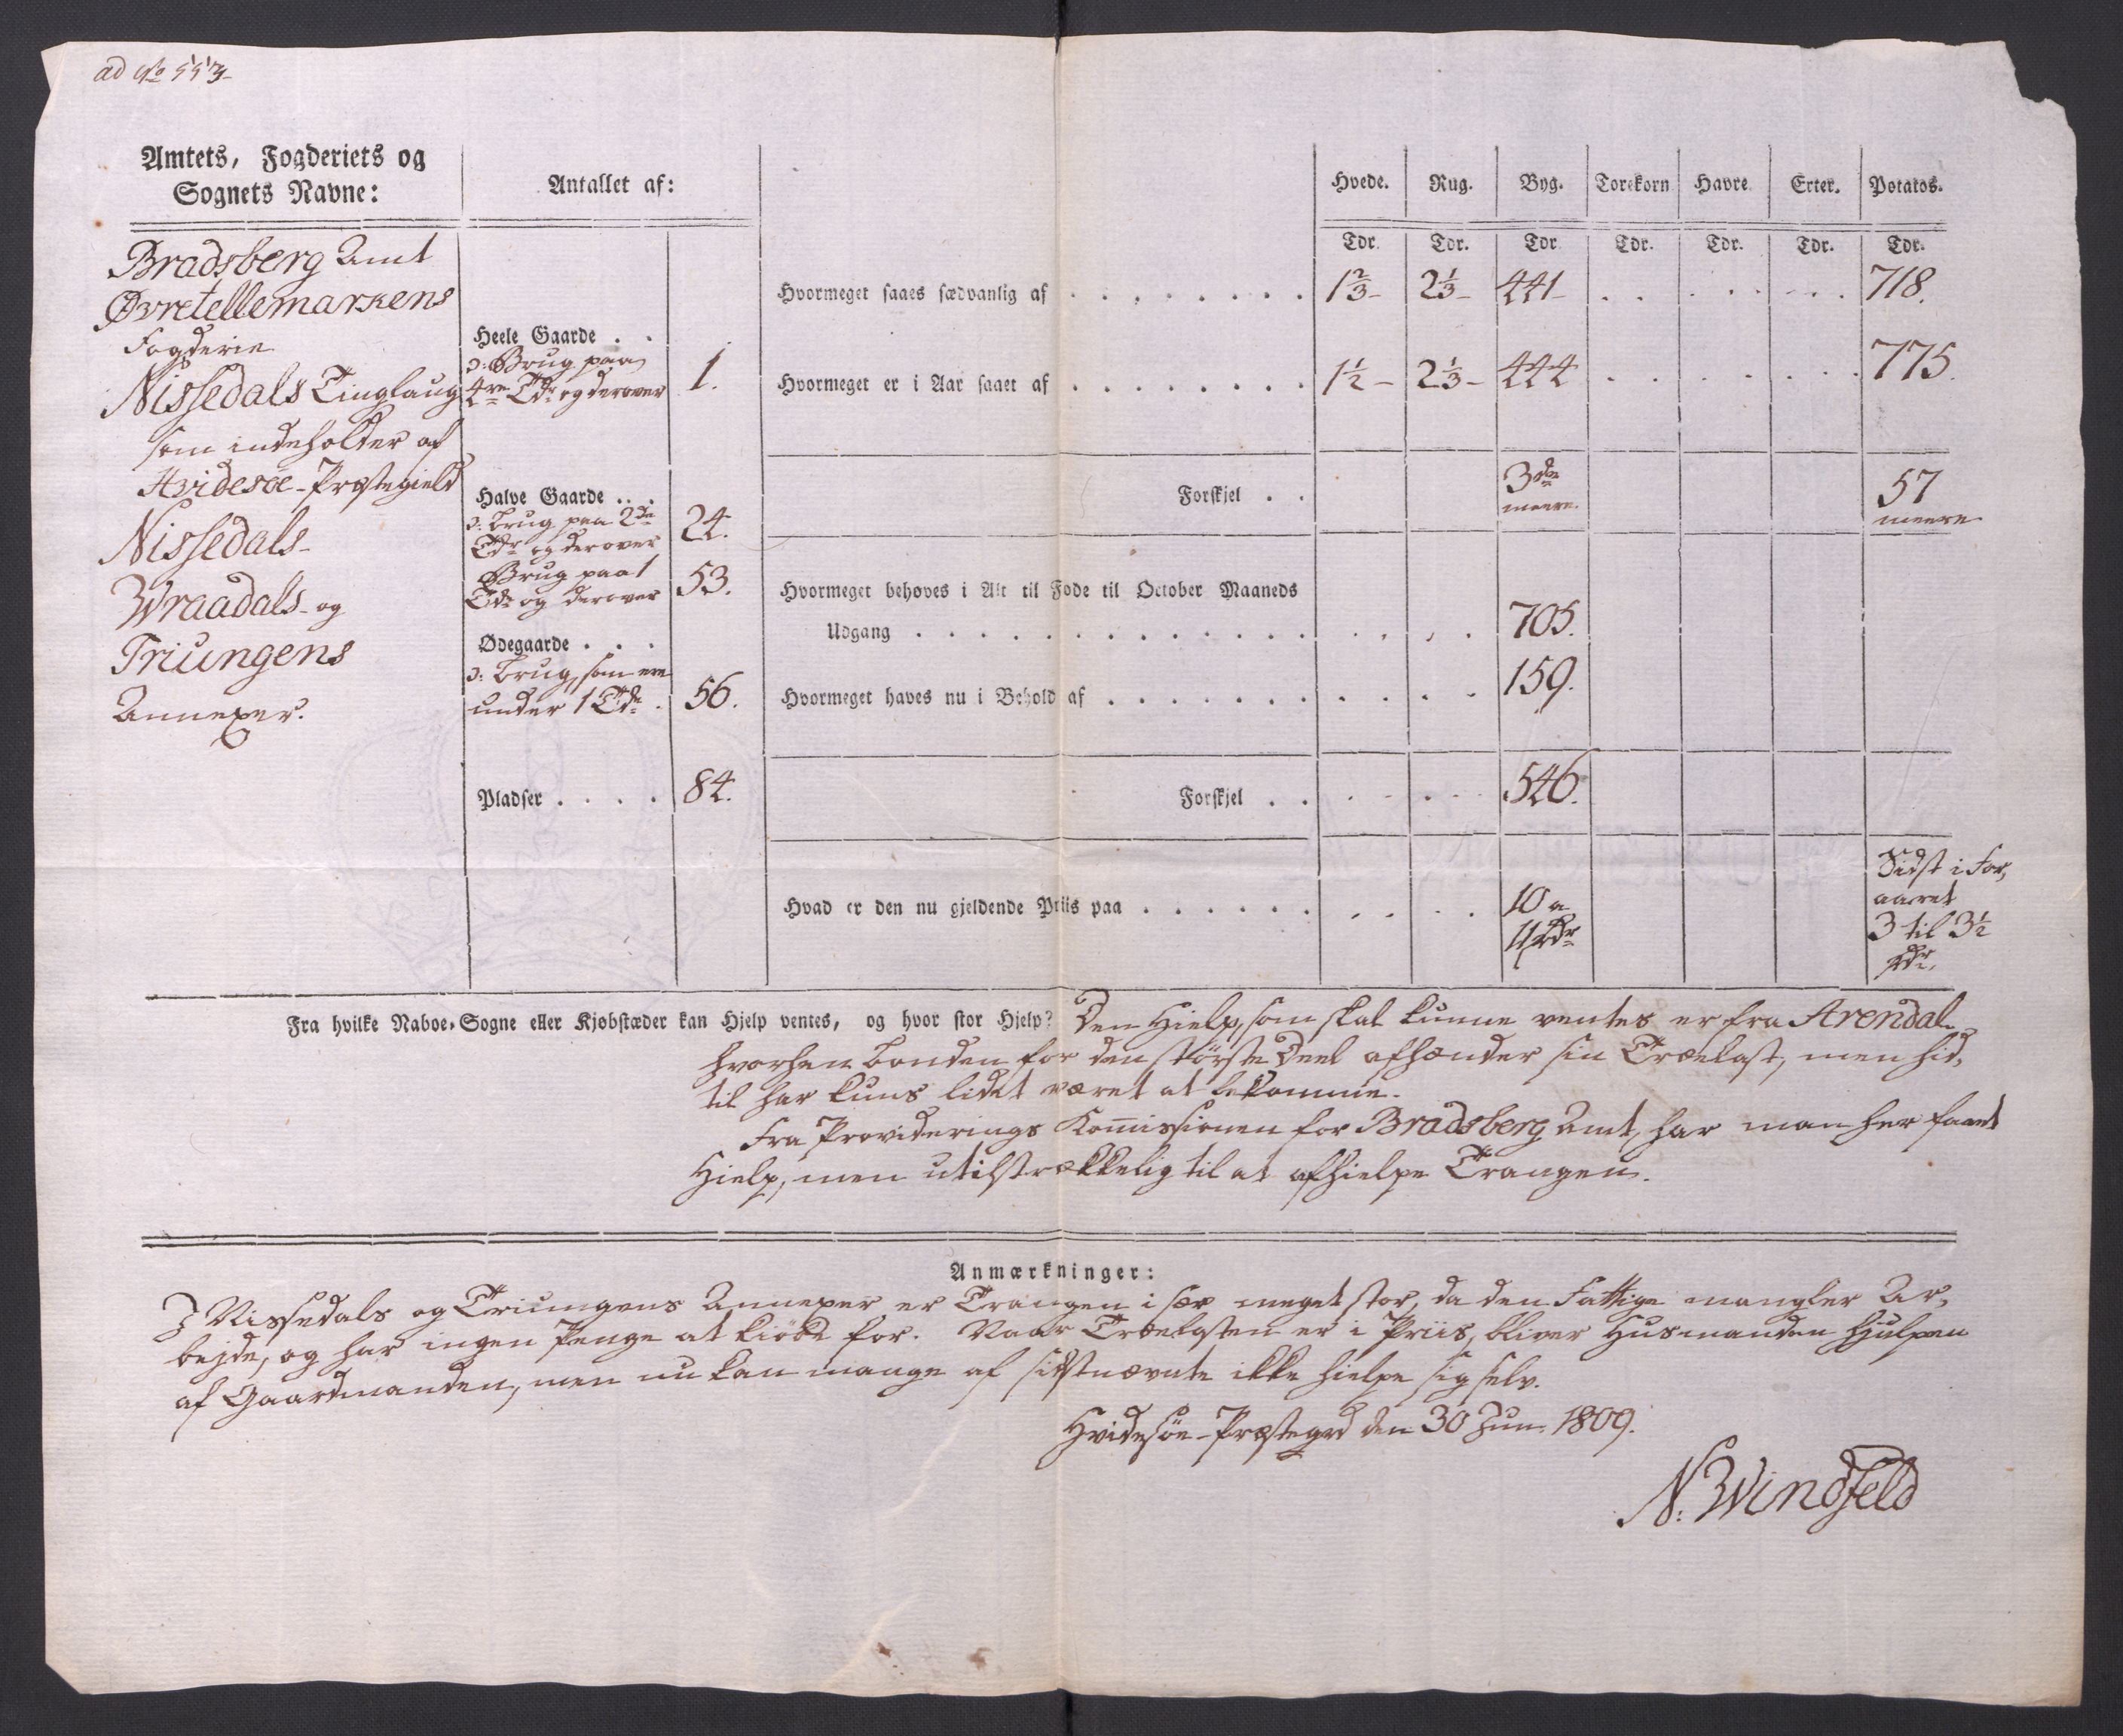 ad No 553
Amtets, Fogderiets og
Sognets Navne:
Antallet af:
Hvede. Rug. Byg. Torekorn Havre Erter. Potatos.
Tdr. Tdr. Tdr. Tdr. Tdr. Tdr. Tdr.
Bradsberg Amt
Øvretellemarkens
Fogderie
Nissedals Tinglaug
som indeholder af
Hvidesøe-Præstegield
Nissedals-
Wraadals- og
Triungens
Annexer.
Heele Gaarde . .
ɔ: Brug paa
4re Tdr og derover 1.
Halve Gaarde . . .
ɔ: Brug paa 2de
Tdr og derover 24.
Brug paa 1
Tde og derover 53.
Ødegaarde . . .
ɔ: Brug, som ere
under 1 Tde. 56.
Pladser . . . . 84.
Hvormeget saaes sædvanlig af . . . . . . . . 1⅔ 2⅓ 441 . . . . . . . 718.
Hvormeget er i Aar saaet af . . . . . . . . 1½ 2⅓ 444 . . . . . . . 775.
Forskjel . . 3de meere. 57 meere
Hvormeget behøves i Alt til Føde til October Maaneds
Udgang . . . . . . . . . . . . . 705.
Hvormeget haves nu i Behold af . . . . . . . 159.
Forskjel . . . . . . 546.
Hvad er den nu gjeldende Priis paa . . . . . . 10 a
11 Rdr
Sidst i For-
aaret
3 til 3½
Rdr.
Fra hvilke Naboe-Sogne eller Kjøbstæder kan Hjelp ventes, og hvor stor Hjelp? Den Hielp, som skal kunne ventes er fra Arendal
hvorhen Bonden for den störste Deel afhænder sin Trælast, men hid-
til har kuns lidet været at bekomme.
Fra Providerings Kom̄issionen for Bradsberg Amt, har man her faaet
Hielp, men utilstrækkelig til at afhielpe Trangen.
Anmærkninger:
I Nissedals og Triungens Annexer er Trangen i sær meget stor, da den Fattige mangler Ar-
bejde, og har ingen Penge at kiöbe for. Naar Trælasten er i Priis, bliver Husmanden hjulpen
af Gaardmanden, men nu kan mange af sidstnævnte ikke hielpe sig selv.
Hvidesöe-Præstegrd den 30 Jun. 1809.
N. Windfeld